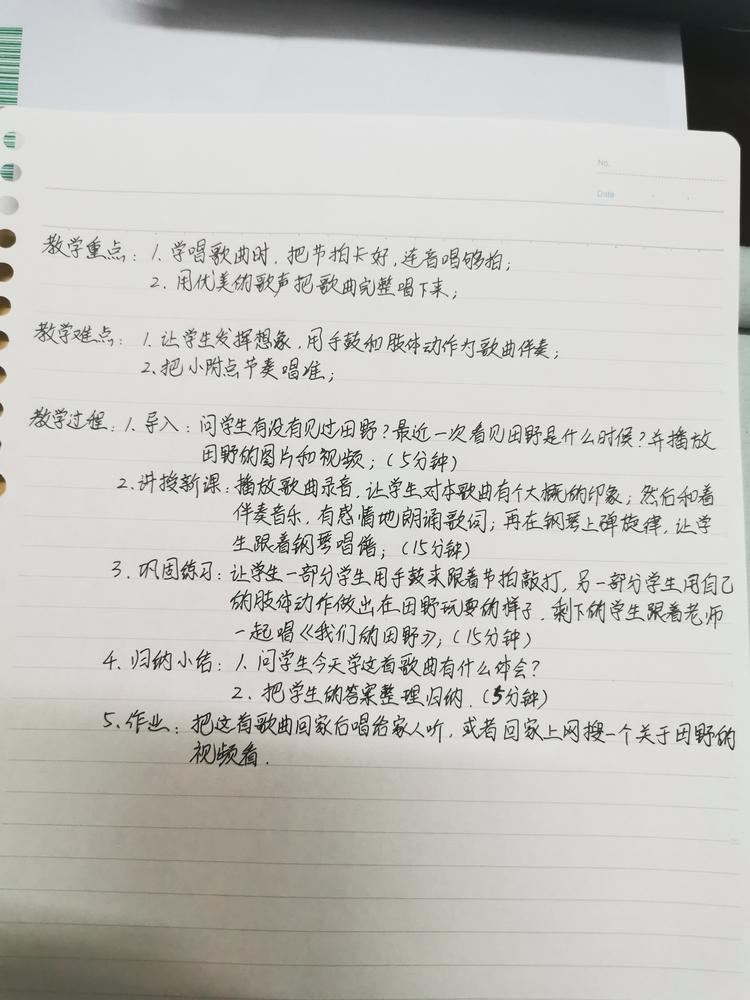 No.
Date
教学重点：1. 学唱歌曲时，把节拍卡好，连音唱够拍；
2. 用优美的歌声把歌曲完整唱下来；
教学难点：1. 让学生发挥想象，用手鼓和肢体动作为歌曲伴奏；
2. 把小附点节奏唱准；
教学过程：1. 导入：问学生有没有见过田野？最近一次看见田野是什么时候？并播放
田野的图片和视频；（5分钟）
2. 讲授新课：播放歌曲录音，让学生对本歌曲有个大概的印象；然后和着
伴奏音乐，有感情地朗诵歌词；再在钢琴上弹旋律，让学
生跟着钢琴唱谱；（15分钟）
3. 巩固练习：让学生一部分学生用手鼓来跟着节拍敲打，另一部分学生用自己
的肢体动作做出在田野玩耍的样子，剩下的学生跟着老师
一起唱《我们的田野》；（15分钟）
4. 归纳小结：1. 问学生今天学这首歌曲有什么体会？
2. 把学生的答案整理归纳.（5分钟）
5. 作业：把这首歌曲回家后唱给家人听，或者回家上网搜一个关于田野的
视频看.